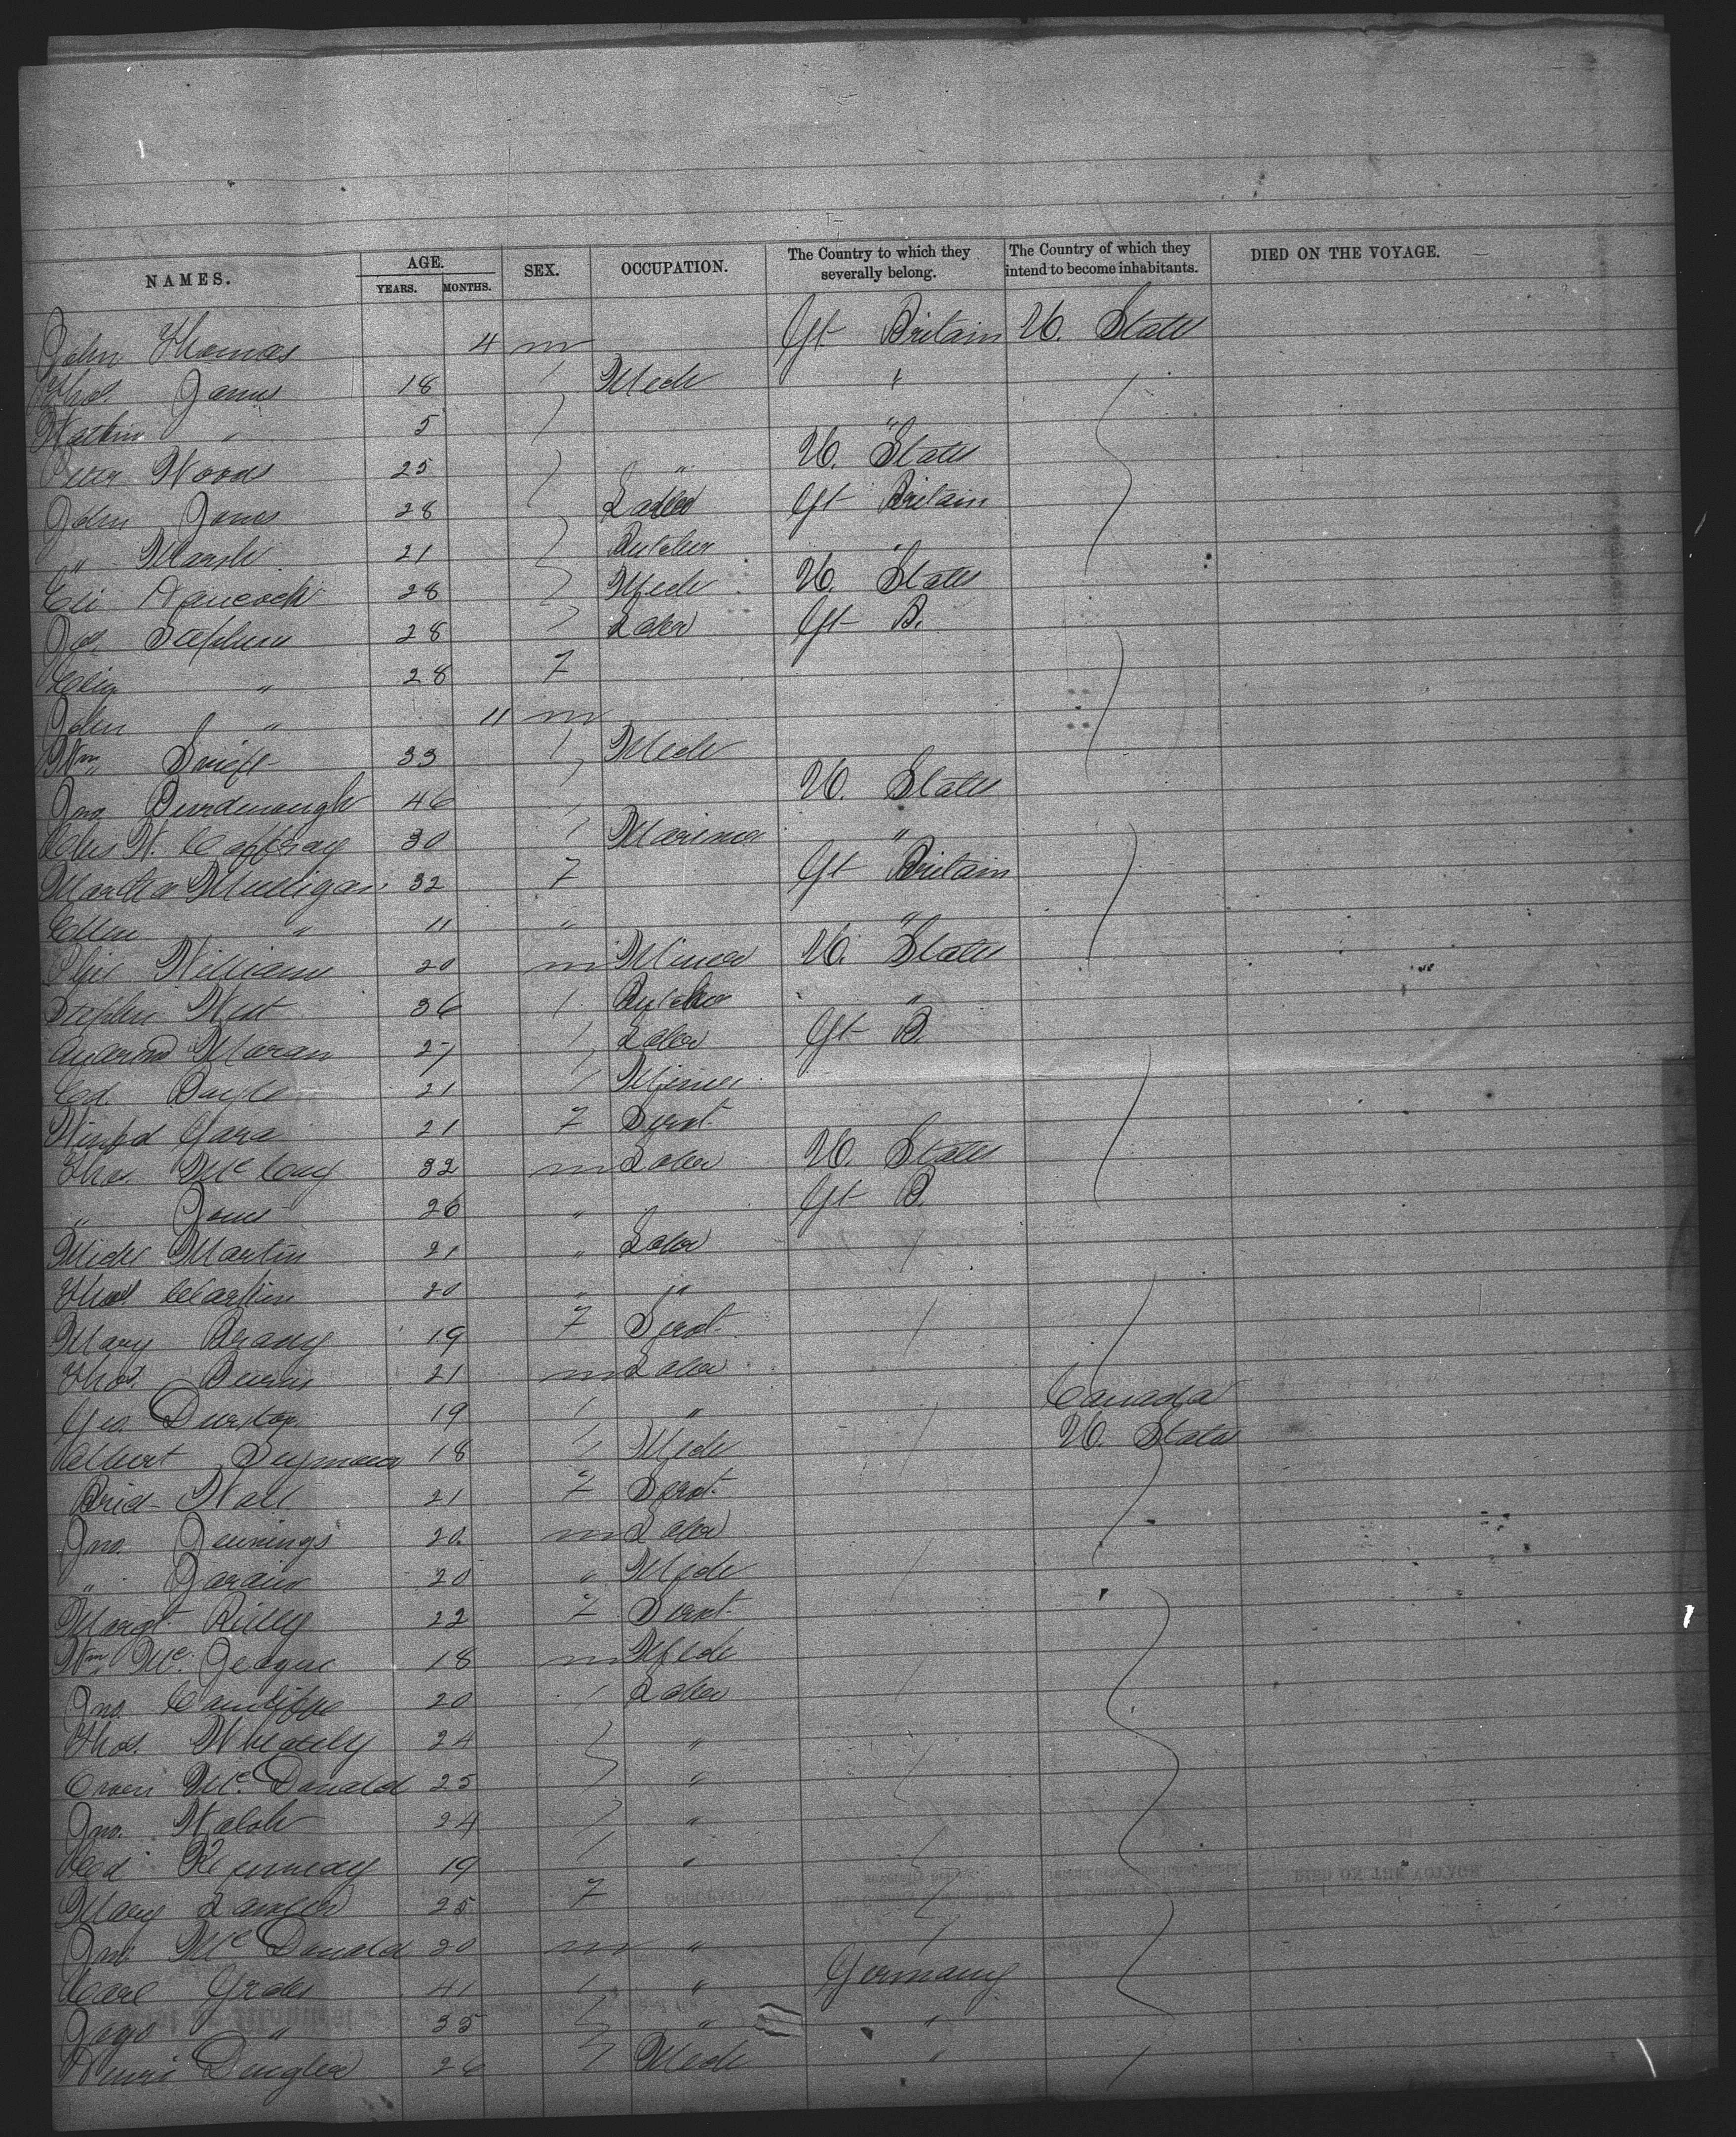 NAMES. AGE. YEARS. MONTHS. SEX. OCCUPATION. The Country to which they severally belong. The Country of which they intend to become inhabitants. DIED ON THE VOYAGE.
John Thomas 4 m Gt Britain U. States
Thos. James 18 Mech "
Watkin " 5 "
Peter Woods 25 " U. States
John Jones 28 Labor Gt Britain
" Marsh 21 Butcher "
Eli Hancock 28 Mech U. States
Jos. Stephens 28 Labor Gt B.
" 28 F
John " 11 m
Wm Swift 33 Mech
Jno. 46 U. States
Chs W. Caffray 30 Mariner "
Martha Mulligan 32 F Gt Britain
Ellen " 11 " "
Williams 20 m Miner U. States
Stephen West 36 Butcher "
Moran 27 Labor Gt B.
Ed. 21 Miner
Winfd Gara 21 F Servt.
Thos. McCoy 32 m Labor U. States
" Jones 26 " " Gt B.
Michl Martin 21 " Labor
Thos 20 " "
Mary Brady 19 F Servt.
Thos. Burns 21 m Labor
Geo. 19 " Canada
Albert Seymour 18 Mech U. States
Brid Wall 21 F Servt.
Jno. Jennings 20 m Labor
" 20 " Mech
Margt Reilly 22 F Servt.
Wm Mc. 18 m Mech
Jno. 20 Labor
Thos. Wheately 24 "
Owen Mc. Donald 25 "
Jno. Walsh 24 "
19 "
Mary 25 F
Jno. Mc Donald 20 m "
Carl 41 " Germany
" 35 " "
Henri Dengler 26 Mech "